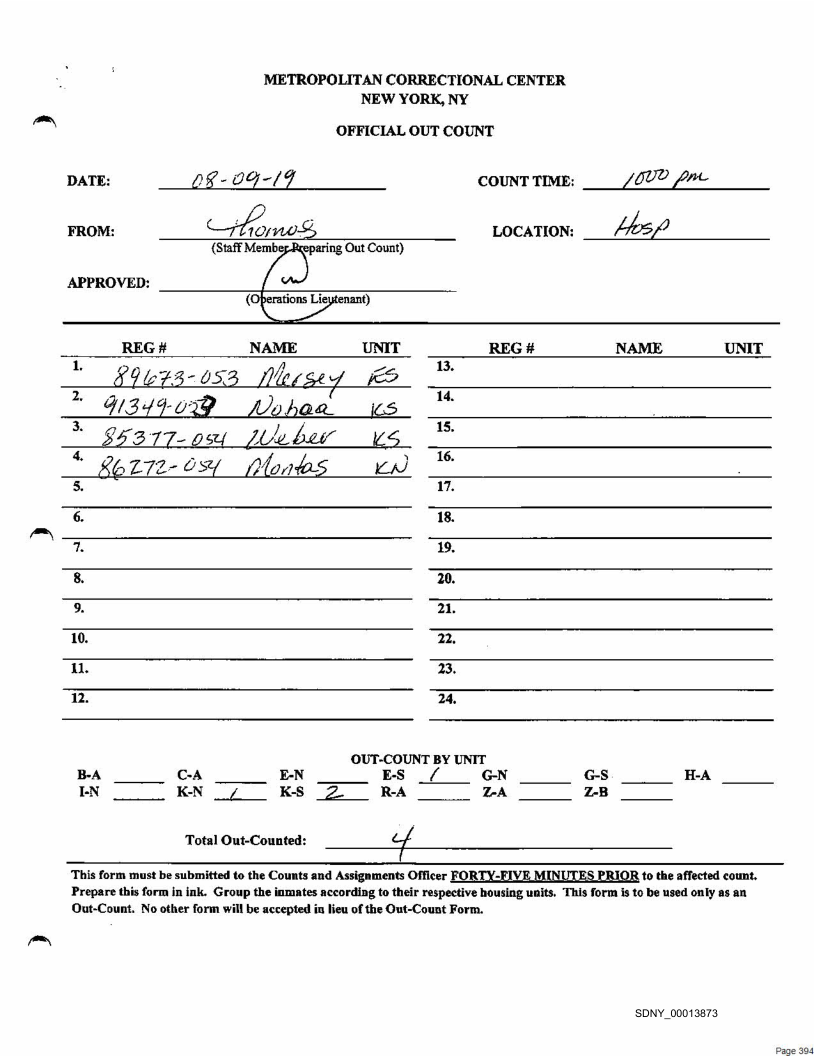 METROPOLITAN CORRECTIONAL CENTER
NEW YORK, NY
OFFICIAL OUT COUNT
DATE: 08-09-19 COUNT TIME: 1000 pm
FROM: Thomas LOCATION: Hosp
(Staff Member Preparing Out Count)
APPROVED:
(Operations Lieutenant)
REG # NAME UNIT REG # NAME UNIT
1. 89673-053 Mersey ES 13.
2. 91349- Nohaa KS 14.
3. 85377-054 Weber KS 15.
4. 86272-054 Montas KN 16.
5. 17.
6. 18.
7. 19.
8. 20.
9. 21.
10. 22.
11. 23.
12. 24.
OUT-COUNT BY UNIT
B-A C-A E-N E-S 1 G-N G-S H-A
I-N K-N 1 K-S 2 R-A Z-A Z-B
Total Out-Counted: 4
This form must be submitted to the Counts and Assignments Officer FORTY-FIVE MINUTES PRIOR to the affected count.
Prepare this form in ink. Group the inmates according to their respective housing units. This form is to be used only as an
Out-Count. No other form will be accepted in lieu of the Out-Count Form.
SDNY_00013873
Page 394